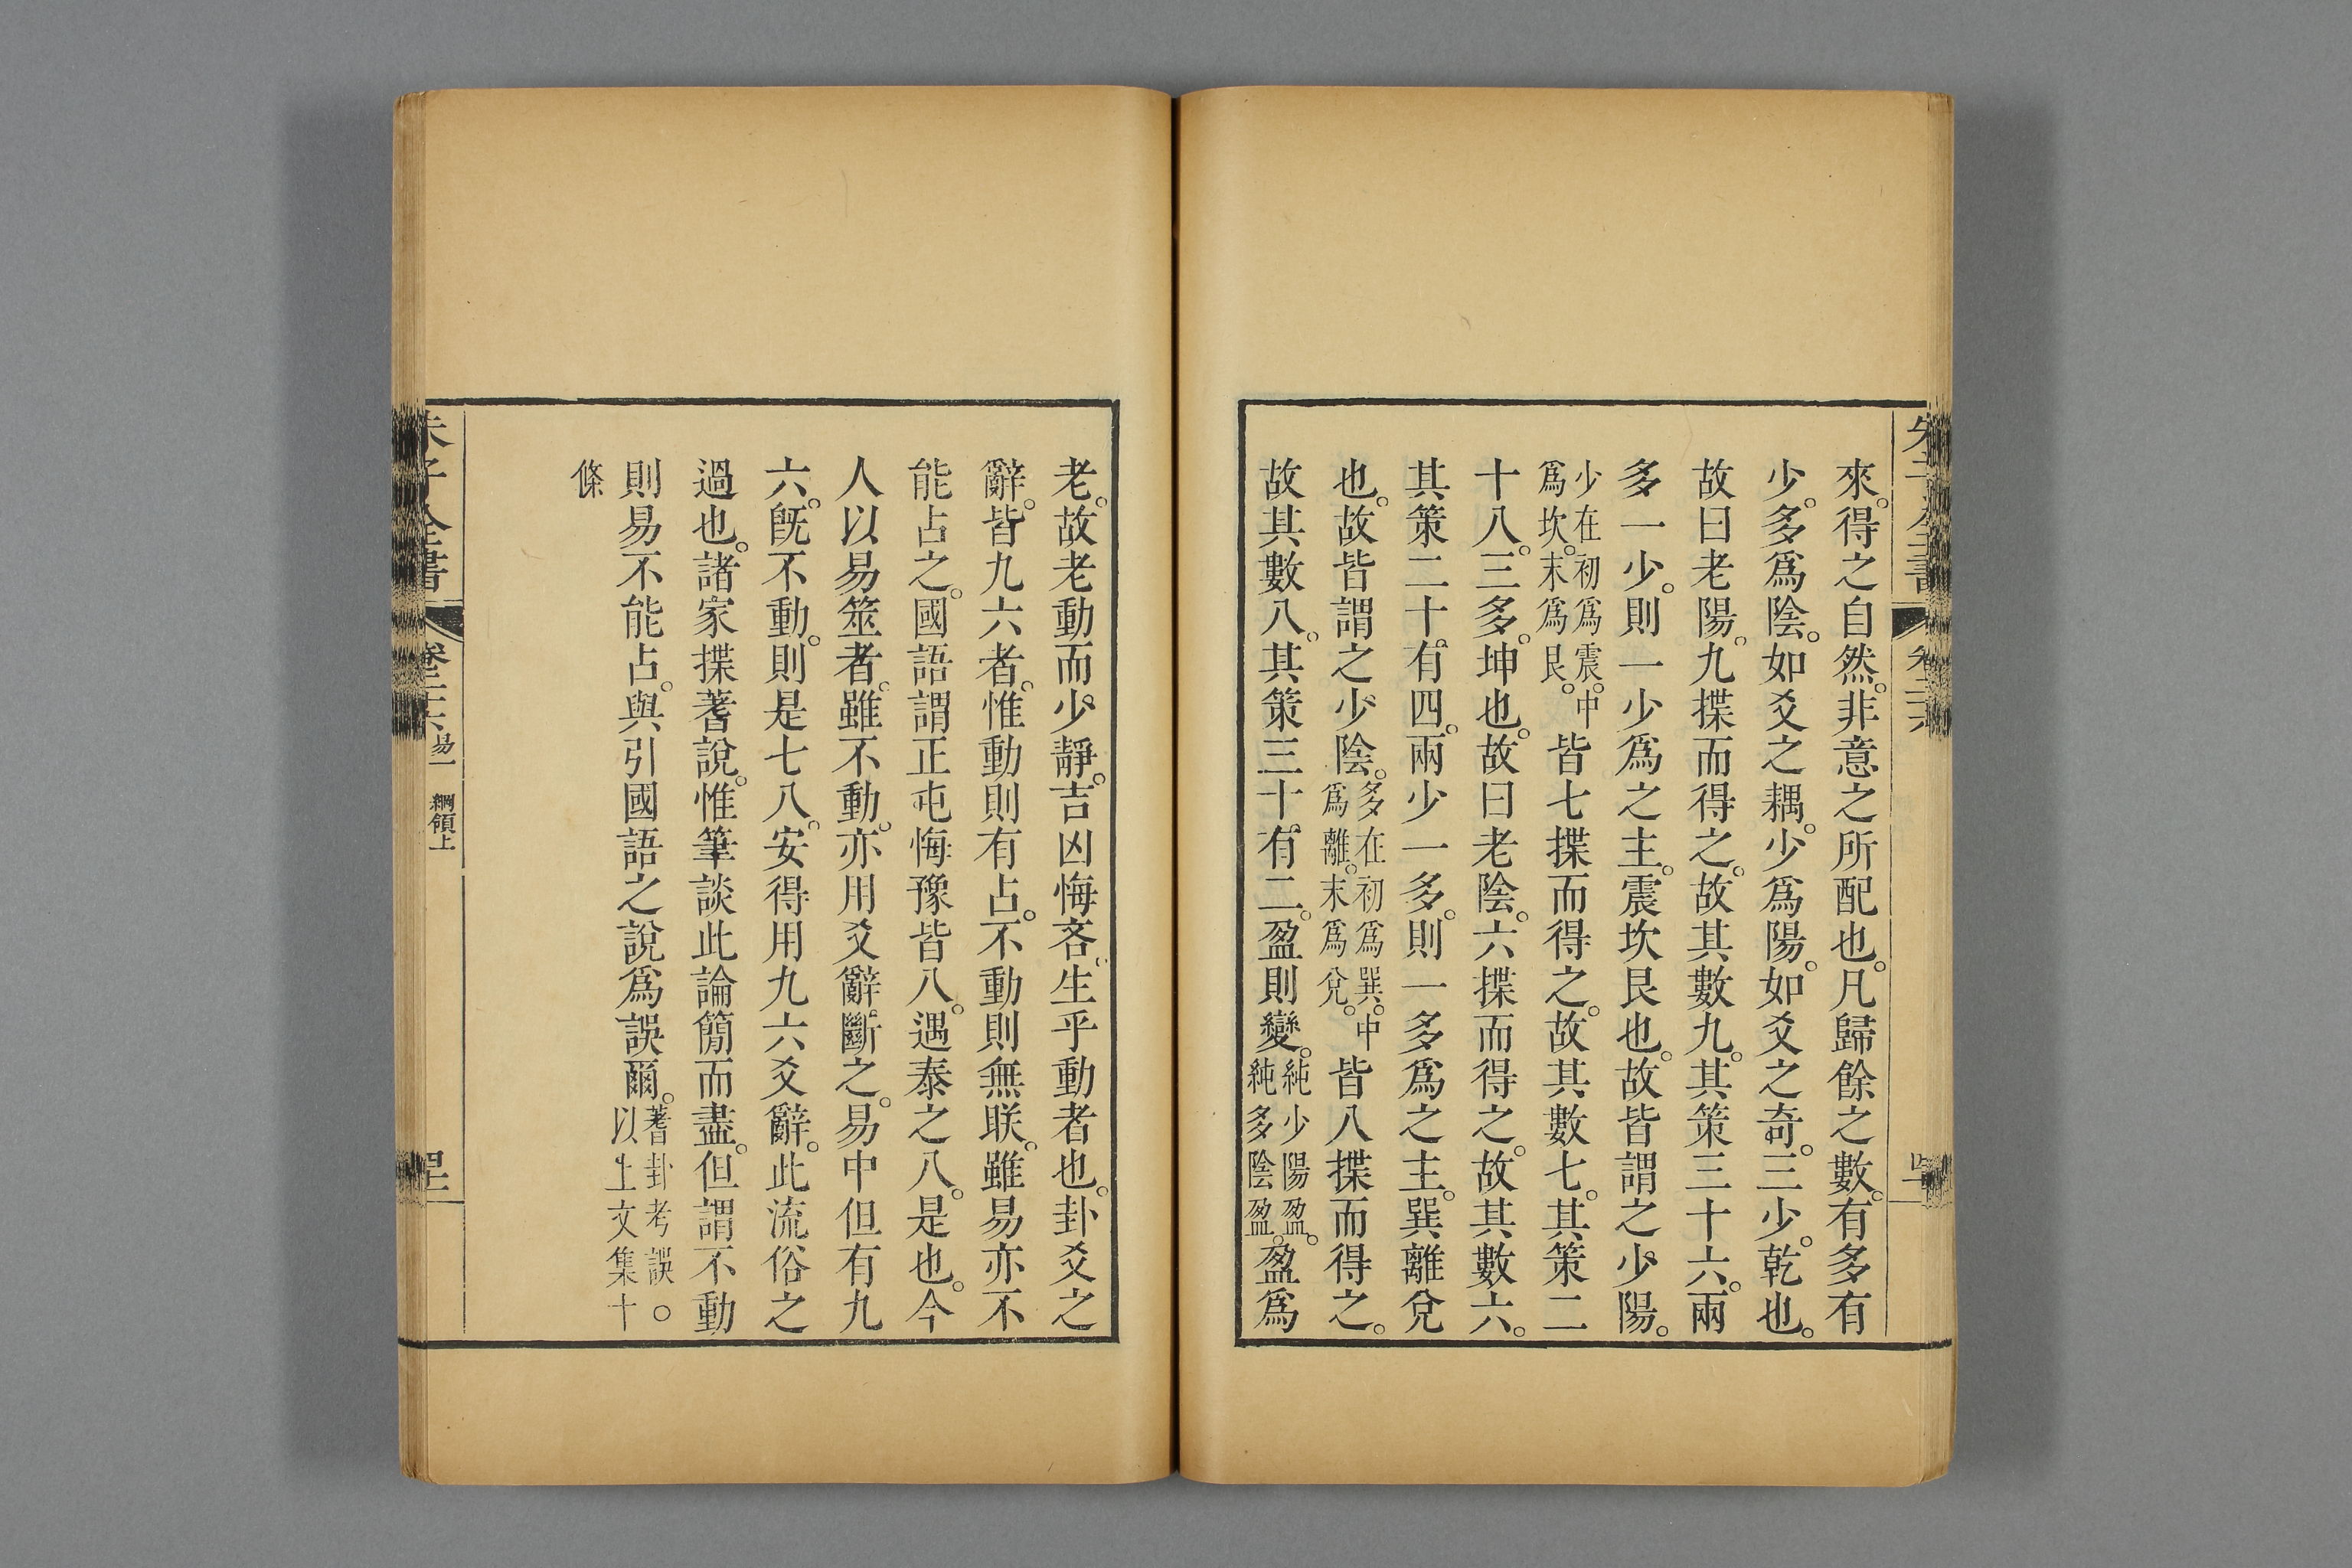 來。得之自然。非意之所配也。凡歸餘之數。有多有
少。多爲陰。如爻之耦。少爲陽。如爻之奇。三少。乾也。
故曰老陽。九揲而得之。故其數九。其策三十六。兩
多一少。則一少爲之主。震坎艮也。故皆謂之少陽。
少在初爲震。中
爲坎。末爲艮。
皆七揲而得之。故其數七。其策二
十八。三多。坤也。故曰老陰。六揲而得之。故其數六。
其策二十有四。兩少一多。則一多爲之主。巽離兌
也。故皆謂之少陰。
多在初爲巽。中
爲離。末爲兌。
皆八揲而得之。
故其數八。其策三十有二。盈則變。
純少陽盈。
純多陰盈。
盈爲
老。故老動而少靜。吉凶悔吝。生乎動者也。卦爻之
辭。皆九六者。惟動則有占。不動則無朕。雖易亦不
能占之。國語謂正屯悔豫皆八。遇泰之八。是也。今
人以易筮者。雖不動。亦用爻辭斷之。易中但有九
六。旣不動。則是七八。安得用九六爻辭。此流俗之
過也。諸家揲蓍說。惟筆談此論簡而盡。但謂不動
則易不能占。與引國語之說爲誤爾。
蓍卦考誤○
以上文集十
條
朱子全書
卷二十六
易一
綱領上